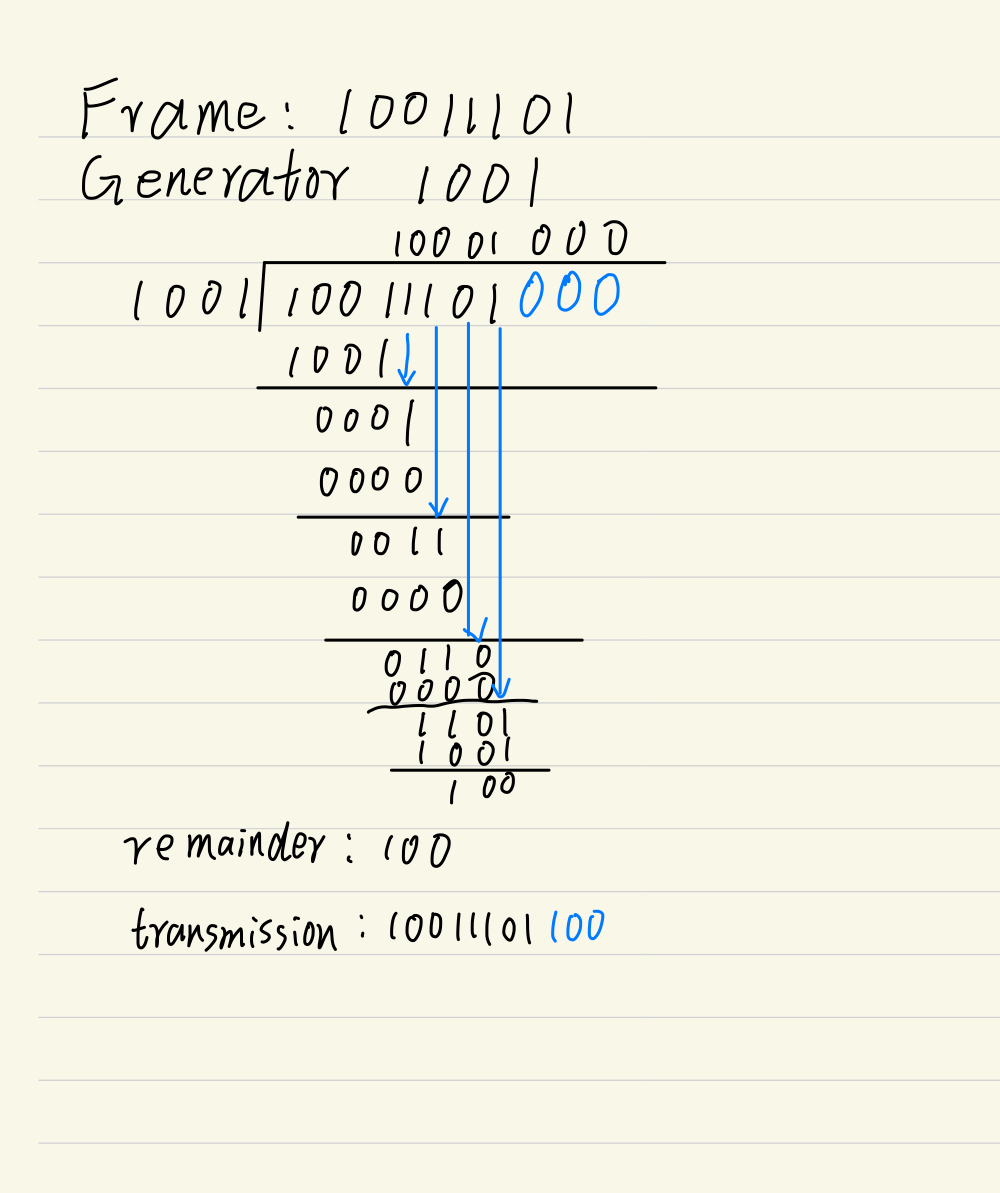 Frame: 10011101
Generator 1001
10001000
1001 10011101000
1001
0001
0000
0011
0000
0110
0000
1101
1001
100
remainder: 100
transmission: 10011101100